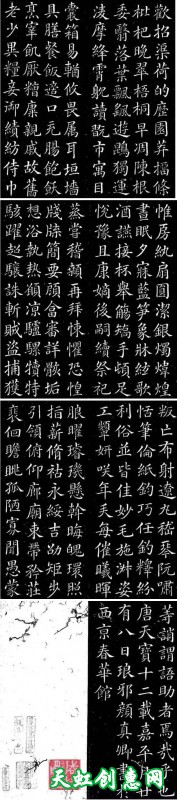 歡招渠荷的歷園莽抽條
枇杷晚翠梧桐早凋陳根
委翳落葉飄颻遊鵾獨運
凌摩絳霄耽讀翫市寓目
囊箱易輶攸畏屬耳垣墻
具膳餐飯適口充腸飽飫
烹宰飢厭糟糠親戚故舊
老少異糧妾御績紡侍巾
帷房紈扇圓潔銀燭煒煌
晝眠夕寐藍筍象牀絃歌
酒讌接杯舉觴矯手頓足
悅豫且康嫡後嗣續祭祀
蒸嘗稽顙再拜悚懼恐惶
牋牒簡要顧答審詳骸垢
想浴執熱願涼驢騾犢特
駭躍超驤誅斬賊盜捕獲
叛亡布射遼丸嵇琴阮嘯
恬筆倫紙鈞巧任釣釋紛
利俗並皆佳妙毛施淑姿
工顰妍咲年矢每催曦暉
朗曜璇璣懸斡晦魄環照
指薪脩祜永綏吉劭矩步
引領俯仰廊廟束帶矜莊
裵徊瞻眺孤陋寡聞愚蒙
等誚謂語助者焉哉乎也
唐天寶十二載嘉平月廿
有八日琅邪顏真卿書於
西京春華館
天虹创意网